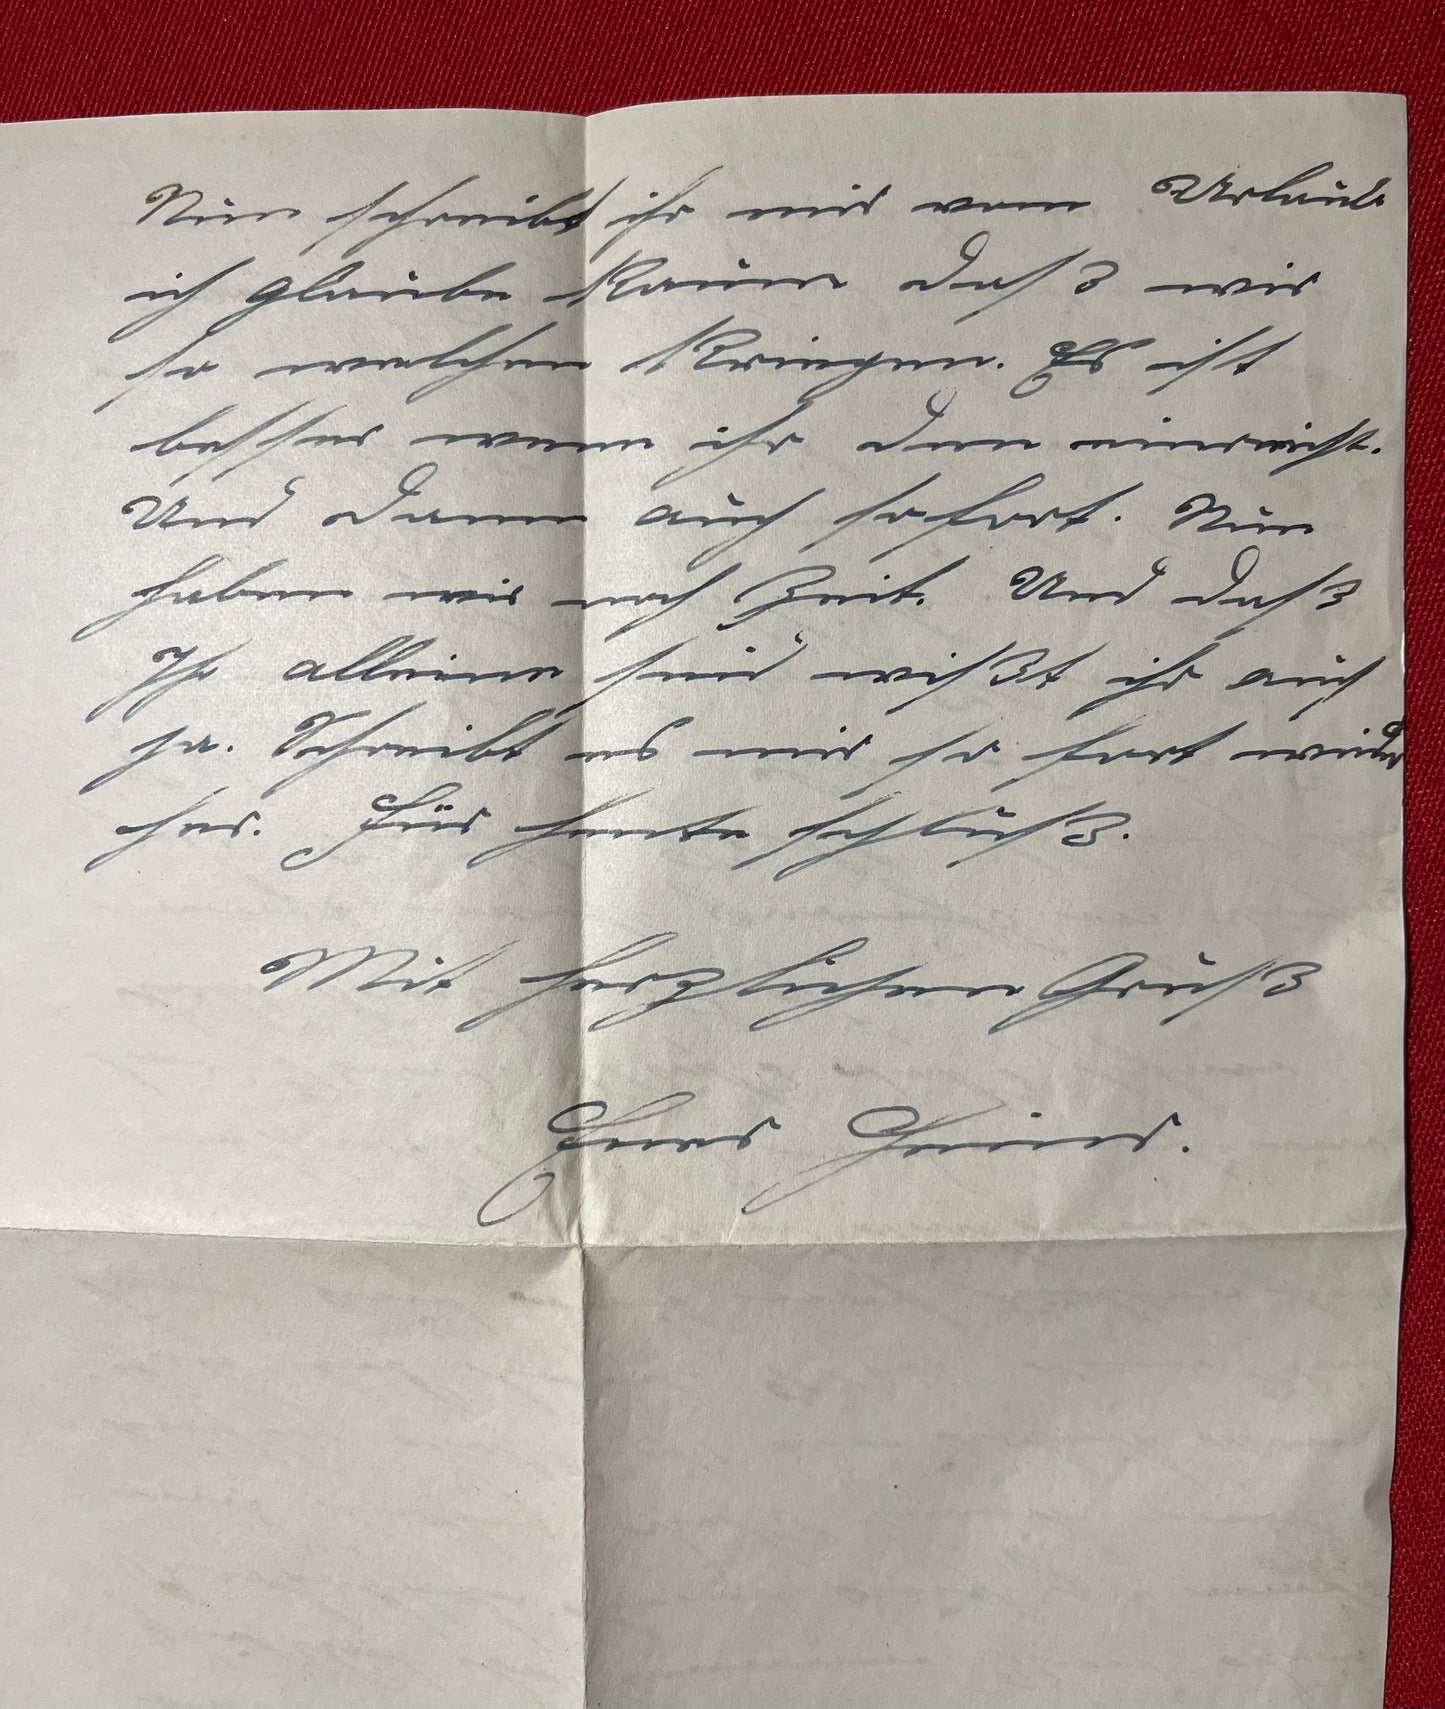 Nun schreibt ihr mir vom Urlaub
ich glaube kaum daß wir
so welchen kriegen. Es ist
besser wenn ihr den einreicht.
Und dann auch sofort. Nun
haben wir noch Zeit. Und daß
Ihr alleine seid wißt ihr auch
ja. Schreibt es mir so fort wieder
her. Für heute schluß.
Mit herzlichen Gruß
Euer Heinz.